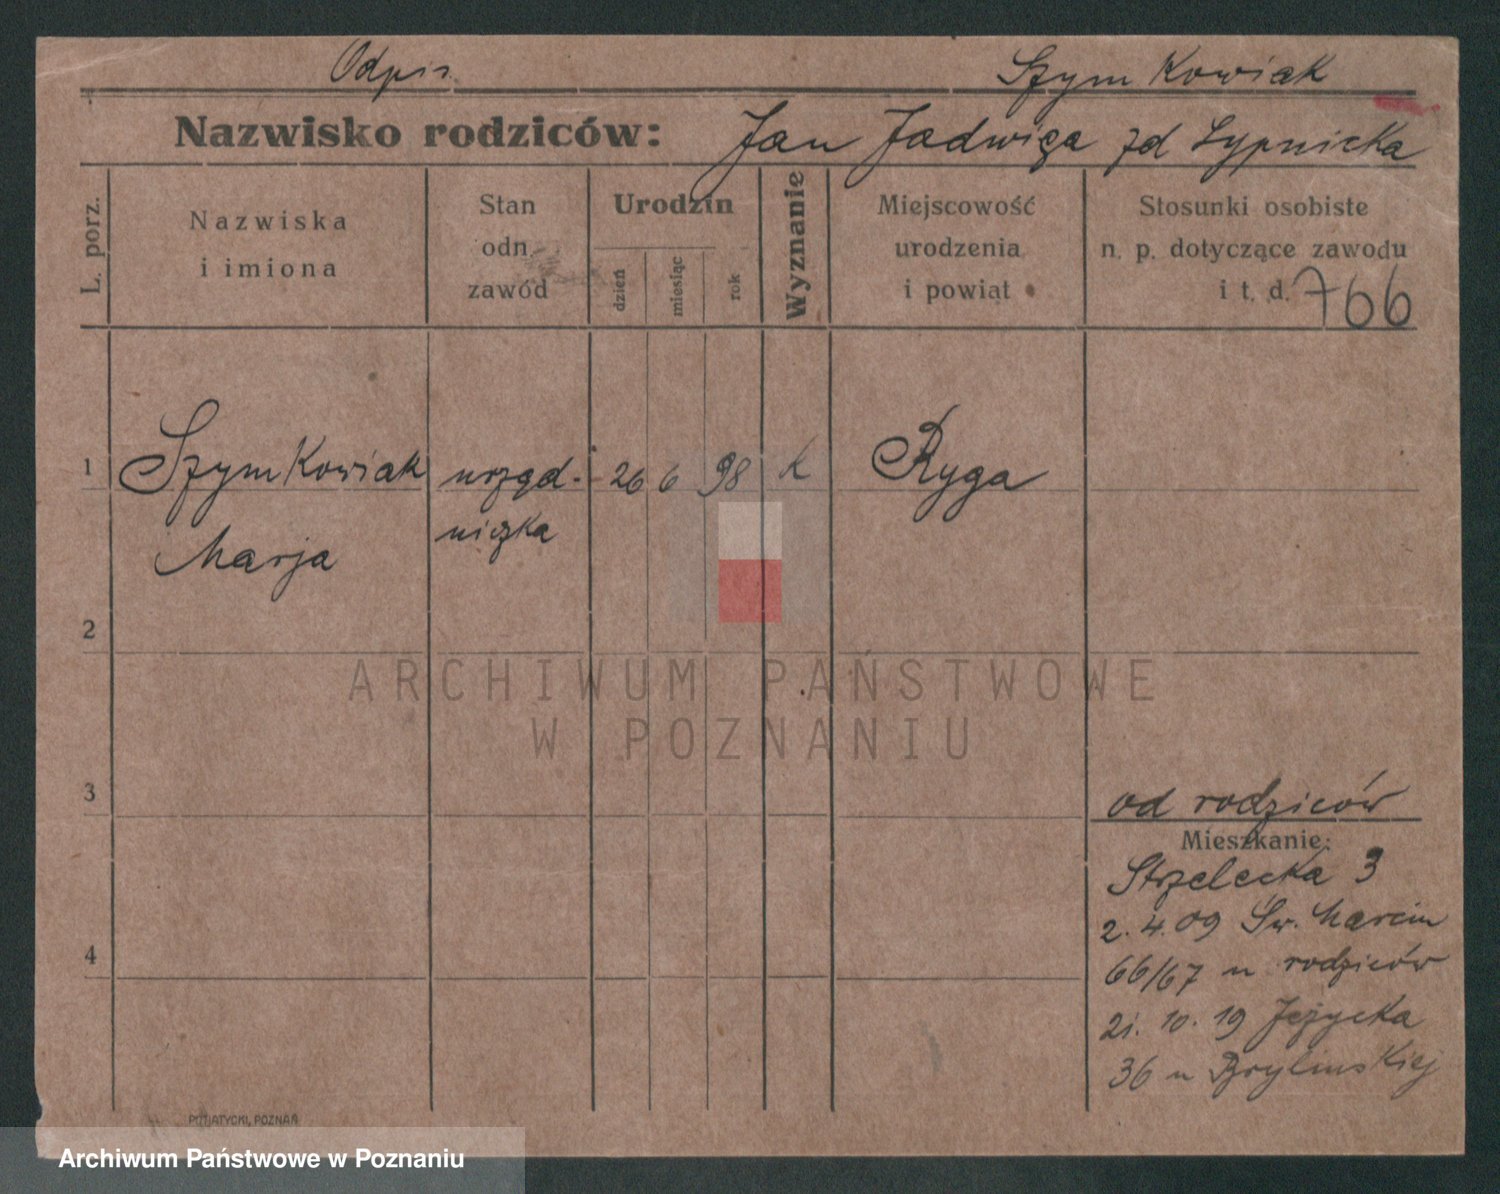 Odpis. Szymkowiak
Nazwisko rodziców: Jan Jadwiga zd Lypnicka
L. porz.
Nazwiska
i imiona
Stan
odn.
zawód
Urodzin
dzień
miesiąc
rok
Wyznanie
Miejscowość
urodzenia
i powiat
Stosunki osobiste
n. p. dotyczące zawodu
i t. d. 766
1 Szymkowiak urzęd- 26 6 98 k Ryga
Marja niczka
2
ARCHIWUM PAŃSTWOWE
W POZNANIU
3
od rodziców
Mieszkanie:
Strzelecka 3
2. 4. 09 Św. Marcin
4
66/67 u rodziców
21. 10. 19 Jeżycka
36 u Brylinskiej
PUTIATYCKI, POZNAŃ
Archiwum Państwowe w Poznaniu